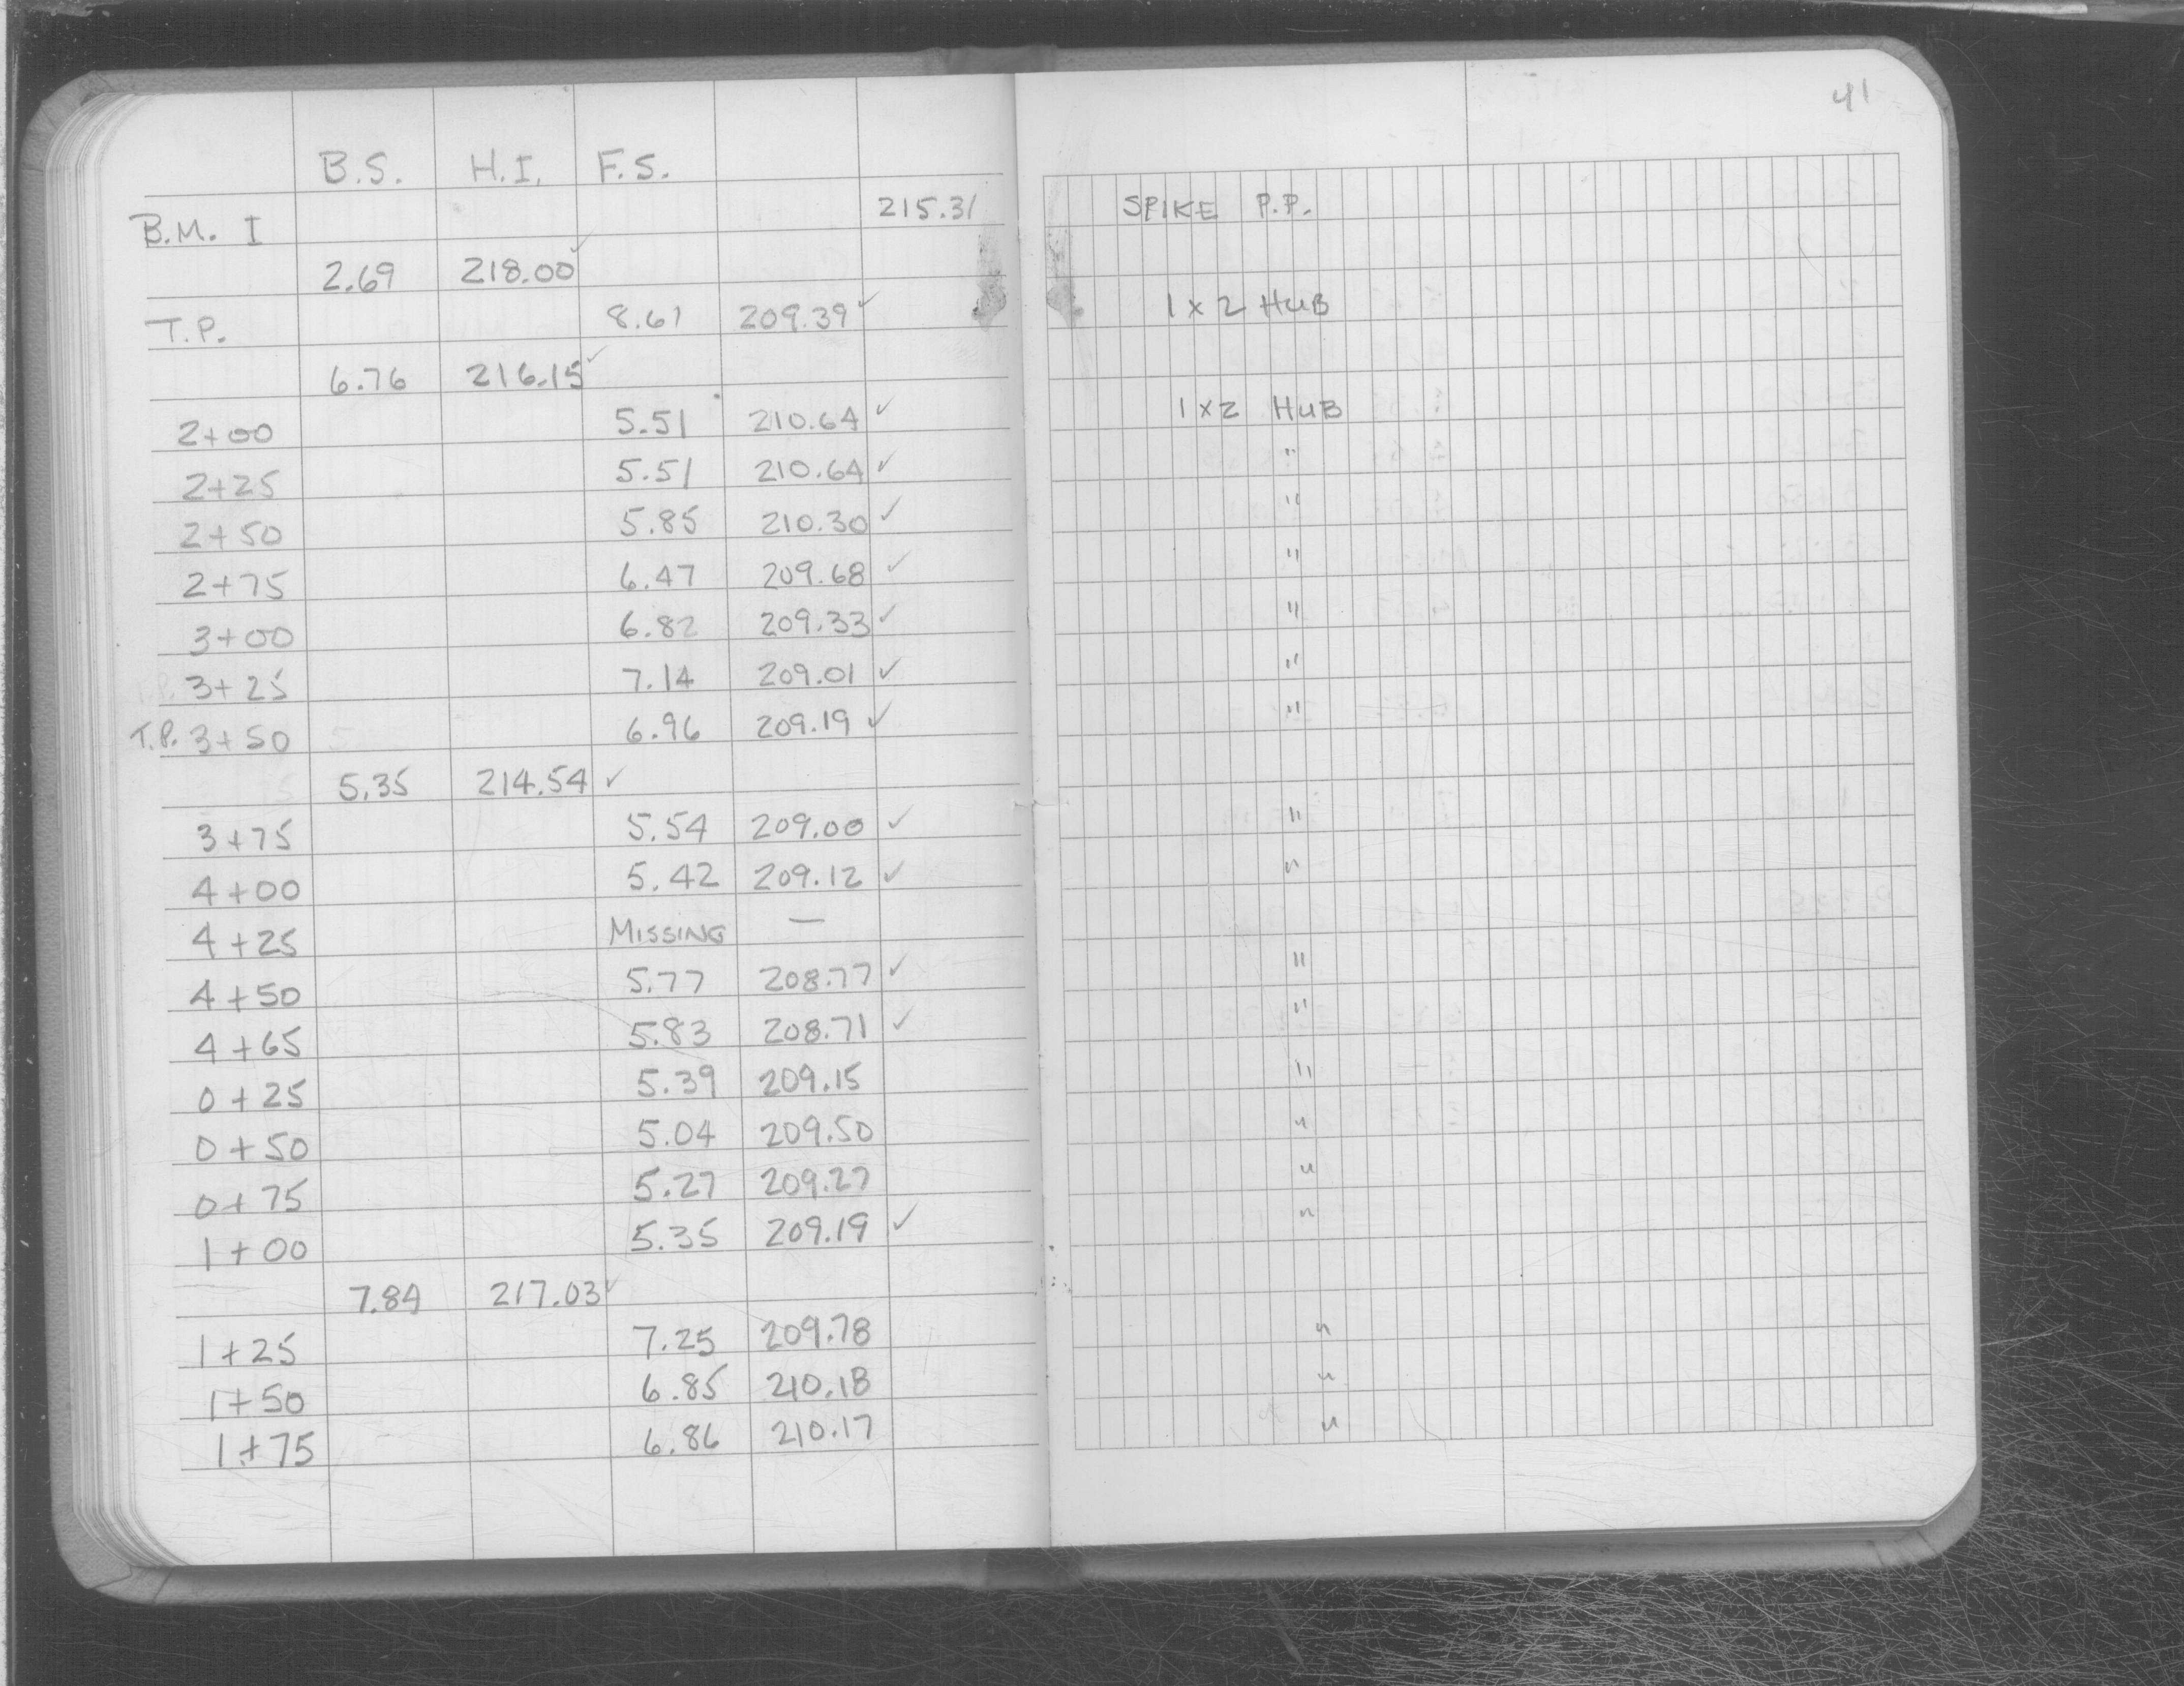 41
B.S. H.I. F.S.
B.M. I 215.31 SPIKE P.P.
2.69 218.00 ✓
T.P. 8.61 209.39 ✓ 1 x 2 HUB
6.76 216.15 ✓
2+00 5.51 210.64 ✓ 1 x 2 HUB
2+25 5.51 210.64 ✓ "
2+50 5.85 210.30 ✓ "
2+75 6.47 209.68 ✓ "
3+00 6.82 209.33 ✓ "
3+25 7.14 209.01 ✓ "
T.P. 3+50 6.96 209.19 ✓ "
5.35 214.54 ✓
3+75 5.54 209.00 ✓ "
4+00 5.42 209.12 ✓ "
4+25 MISSING —
4+50 5.77 208.77 ✓ "
4+65 5.83 208.71 ✓ "
0+25 5.39 209.15 "
0+50 5.04 209.50 "
0+75 5.27 209.27 "
1+00 5.35 209.19 ✓ "
7.84 217.03 ✓
1+25 7.25 209.78 "
1+50 6.85 210.18 "
1+75 6.86 210.17 "